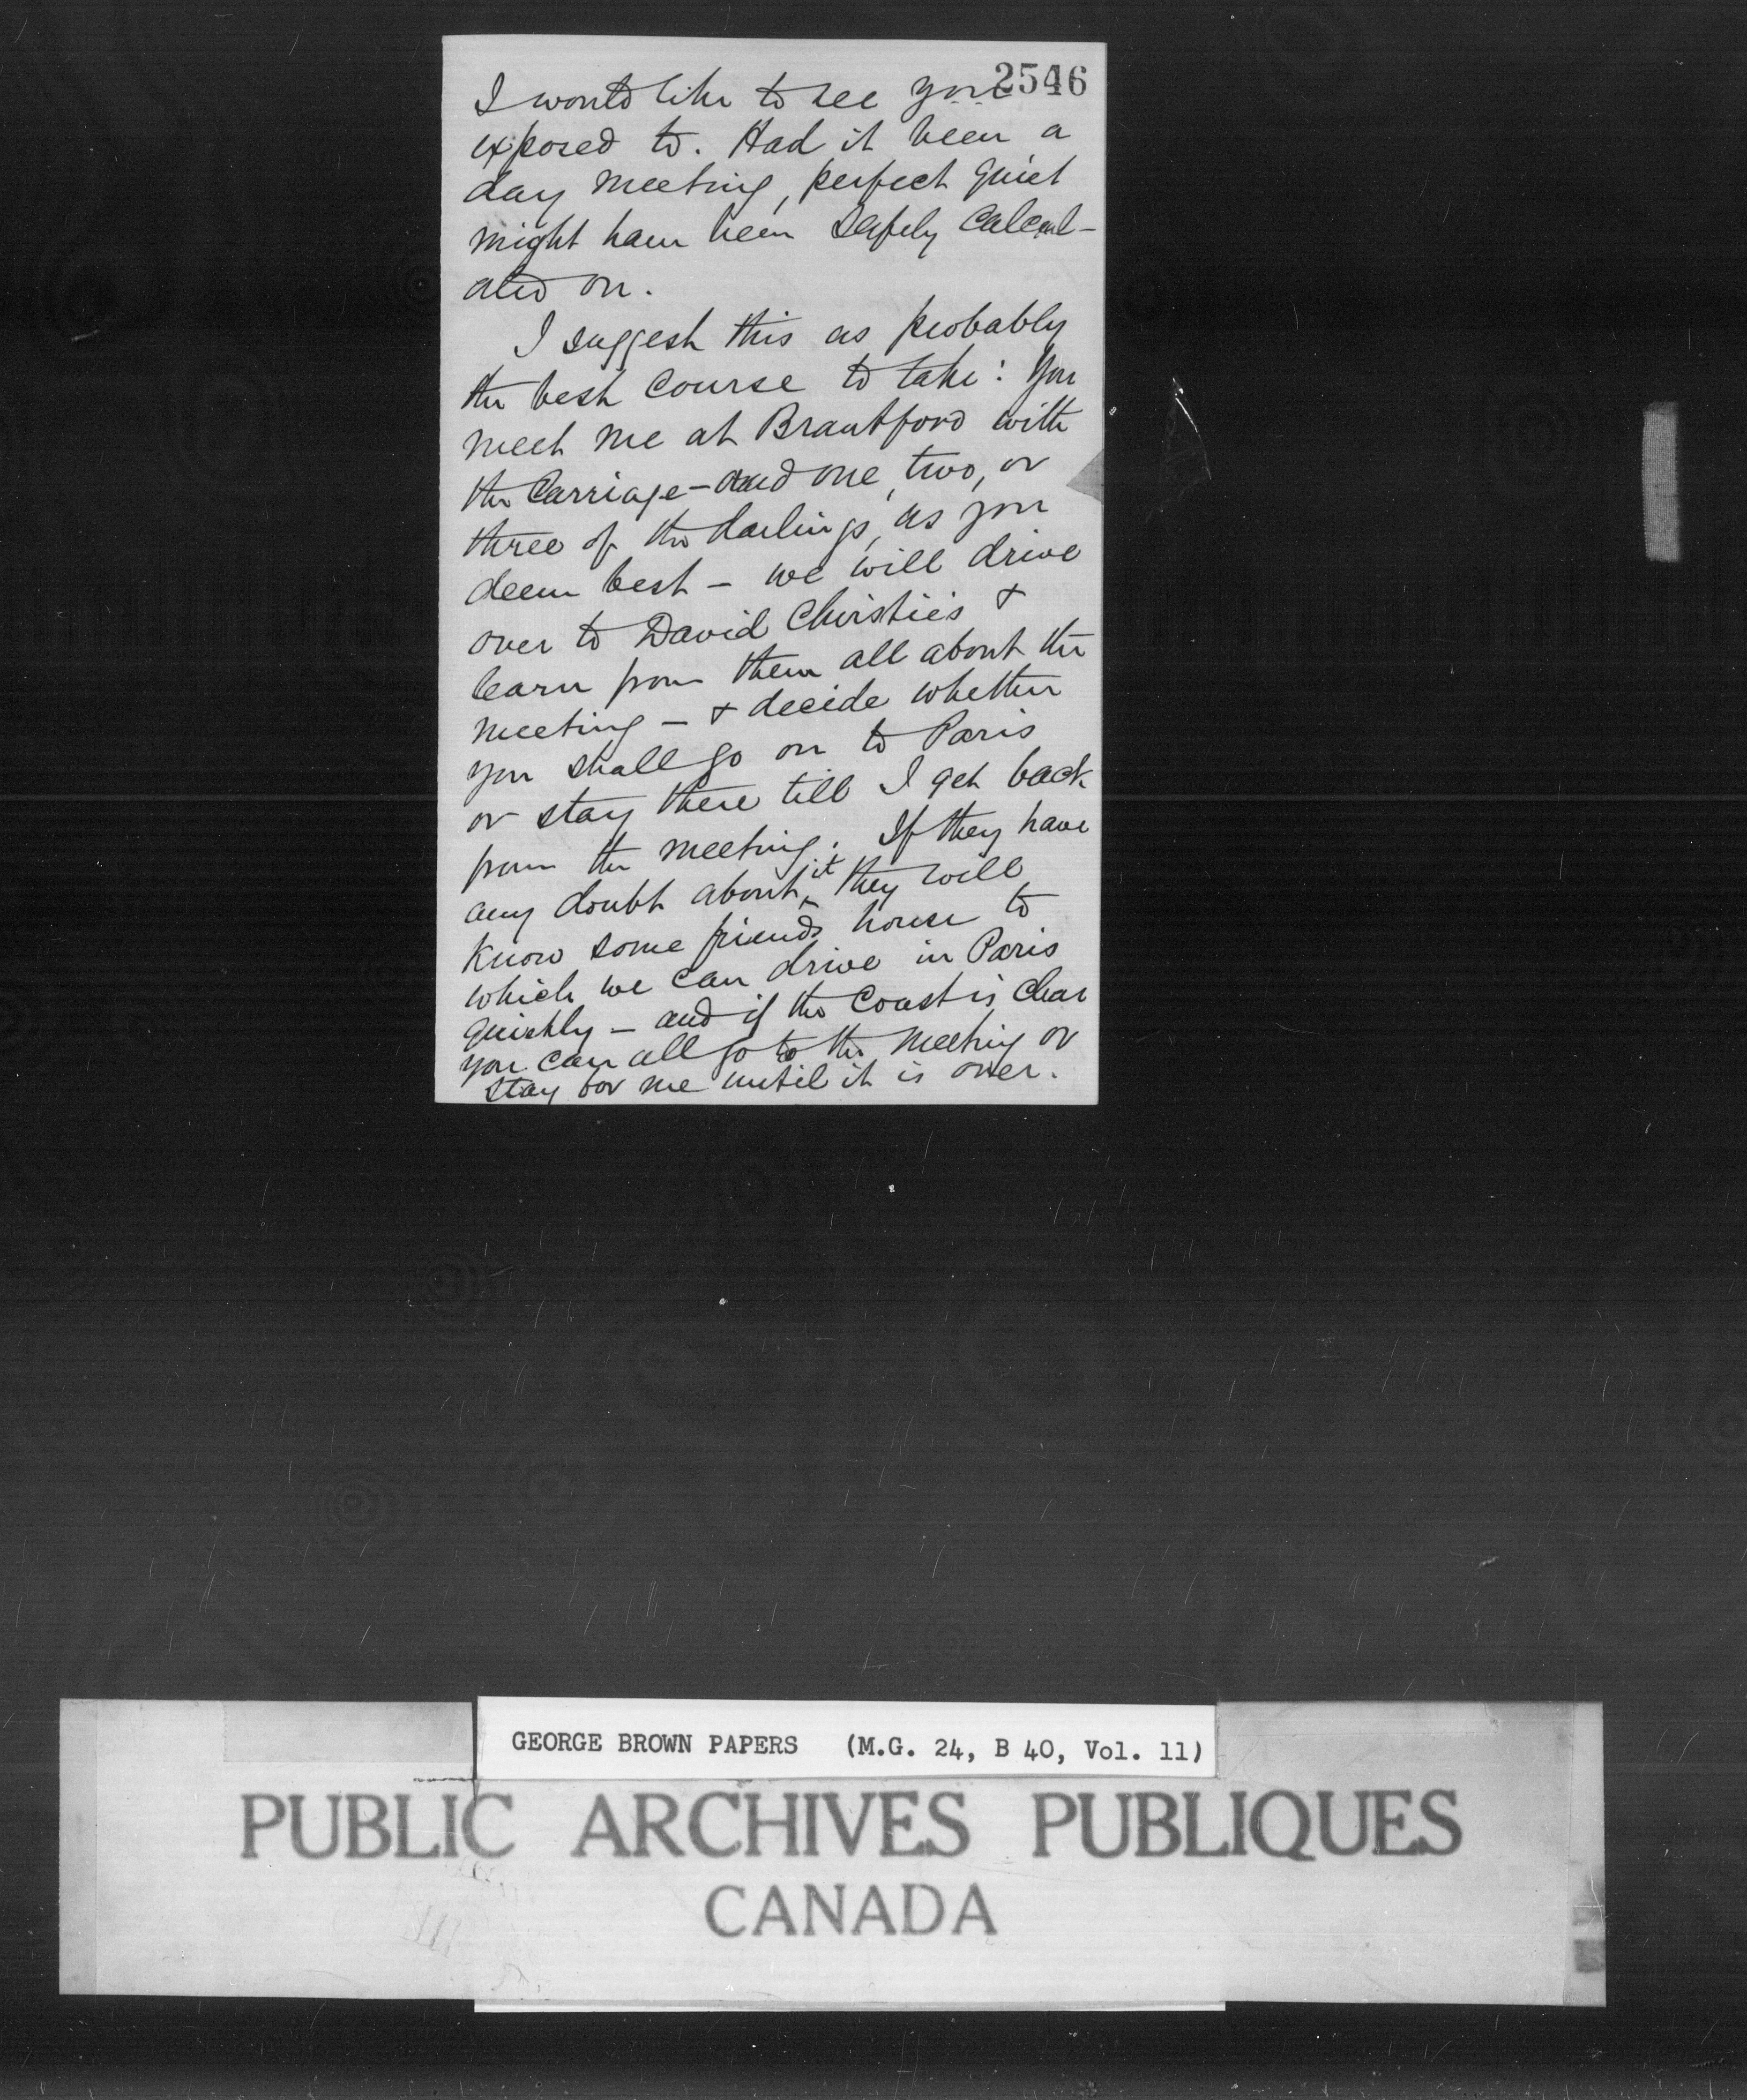 2546
I would like to see you
exposed to. Had it been a
day meeting, perfect quiet
might have been safely calcul-
ated on.
I suggest this as probably
the best course to take: You
meet me at Brantford with
the Carriage - and one, two, or
three of the darlings, as you
deem best - we will drive
over to David Christie's &
learn from them all about the
meeting - & decide whether
you shall go on to Paris
or stay there till I get back
from the meeting. If they have
any doubt about it they will
know some friends house to
which we can drive in Paris
quickly - and if the Coast is clear
you can all go to the meeting or
stay for me until it is over.
GEORGE BROWN PAPERS (M.G. 24, B 40, Vol. 11)
PUBLIC ARCHIVES PUBLIQUES
CANADA